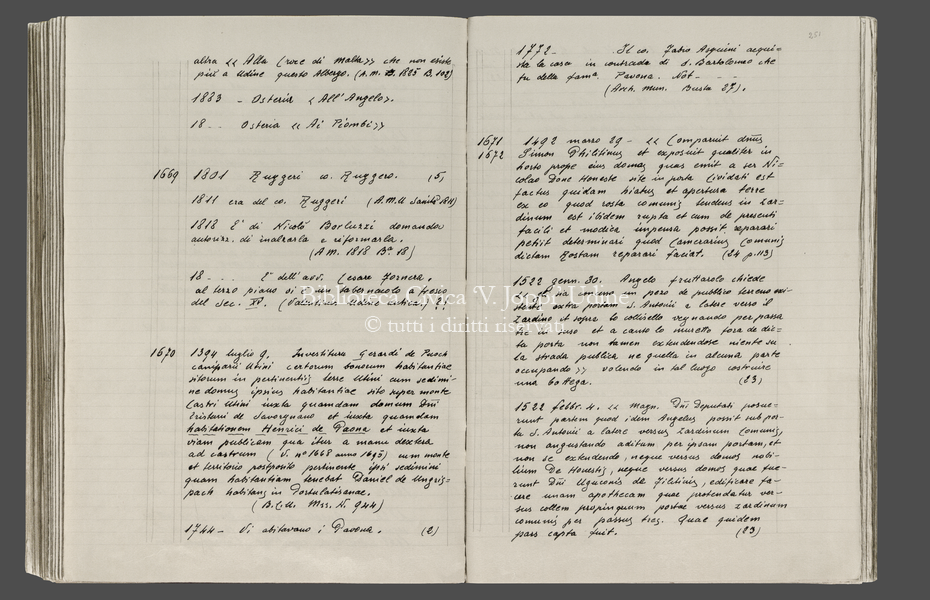 altra << Alla Croce di Malta>> che non esiste
più a Udine questo Albergo. (A.M. B. 1825 B. 102)
1883 - Osteria <All'Angelo>.
18-- Osteria << Ai Piombi>>
1669 1801 Ruggeri co. Ruggero. (5)
1811 era del co. Ruggeri (A.M.U Sanità 1811)
1818 È di Nicolò Borluzzi domanda
autorizz. di inalzarla e riformarla.
(A.M. 1818 Bª 18)
18--- E' dell'avv. Cesare Fornera,
al terzo piano si
del Sec. XV.
1670 1394 luglio 9. Investitura Gerardi de
Utini certorum bonorum habitantiae
sitorum in pertinentijs terre Utini cum sedimi-
ne domus ipsius habitantiae sito super monte
Castri Utini iuxta quamdam domum Dñi
Tristani de Savorgnano et iuxta quamdam
habitationem Henrici de Paona et iuxta
viam publicam qua itur a manu dextera
ad castrum (V. nº 1668 anno 1695) cum monte
et territorio postposito pertinente ipsi sedimini
quam habitantiam tenebat Daniel de Ungris-
pach habitans in Portulatisanae.
(B.C.U. Mss. N. 944)
1744 - Vi abitavano i Pavona. (2)
251
1772 - Il co. Fabio Asquini acqui-
sta la casa in contrada di S. Bartolomeo che
fu della famª. Pavona. Not - - -
(Arch. mun. Busta 27).
1671
1672
1492 marzo 29 - << Comparuit dnus
Simon Philitinus et exposuit qualiter in
horto prope eius domos quas emit a ser Ni-
colao Done Honeste site in porta Cividati est
factus quidam hiatus et apertura terre
ex eo quod rosta comunis tendens in zar-
dinum est ibidem rupta et cum de presenti
facili et modica impensa possit reparari
petijt determinari quod Camerarius Comunis
dictam Rostam reparari faciat. (24 p.113)
1522 genn. 30. Angelo Fruttarolo chiede
pezo de publico terreno exi-
stente extra portam S. Antonii a latere verso il
Zardino et sopra lo collisello vegnando per passa
tre in suso et a canto lo muretto fora de dic-
ta porta non tamen extendendose niente su
la strada publica ne quella in alcuna parte
occupando>> volendo in tal luogo costruire
una bottega. (23)
1522 febbr. 4. << Magn. Dñi Deputati posue-
runt partem quod idem Angelus possit sub por-
ta S. Antonii a latere versus zardinum Comunis,
non angustando aditum per ipsam portam, et
non se extendendo, neque versus domos nobi-
lium De Honestis, neque versus domos quae fue-
runt Dñi Uguconis de Filitinis, edificare fa-
cere unam apothecam quae protendatur ver-
sus collem propinquum portae versus zardinum
comunis per passus tres. Quae quidem
pars capta fuit. (23)
Biblioteca Civica 'V. Joppi' Udine
© tutti i diritti riservati